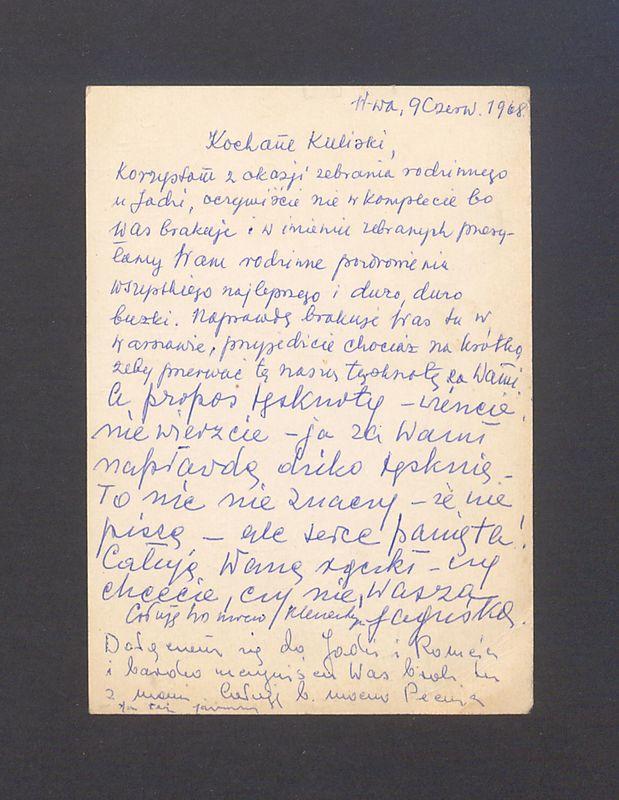 W-wa, 9 Czerw. 1968.
Kochane Kuliski,
Korzystam z okazji zebrania rodzinnego
u Jadzi, oczywiście nie w komplecie bo
Was brakuje i w imieniu zebranych przesy-
łamy Wam rodzinne pozdrowienia
wszystkiego najlepszego i dużo, dużo
buzki. Naprawdę brakuje Was tu w
Warszawie, przyjedźcie chociaż na krótko
żeby przerwać tę naszą tęsknotę za Wami
A propos tęsknoty – wierzcie,
nie wierzcie – ja za Wami
naprawdę dziko tęsknię –
To nic nie znaczy – że nie
piszę – ale serce pamięta!
Całuję Wasze rączki – czy
chcecie, czy nie, Wasza
Całuję Was mocno Jaguśka.
Dołączam się do Jadzi i
i bardzo Was brak tu
z nami Całuję b. mocno